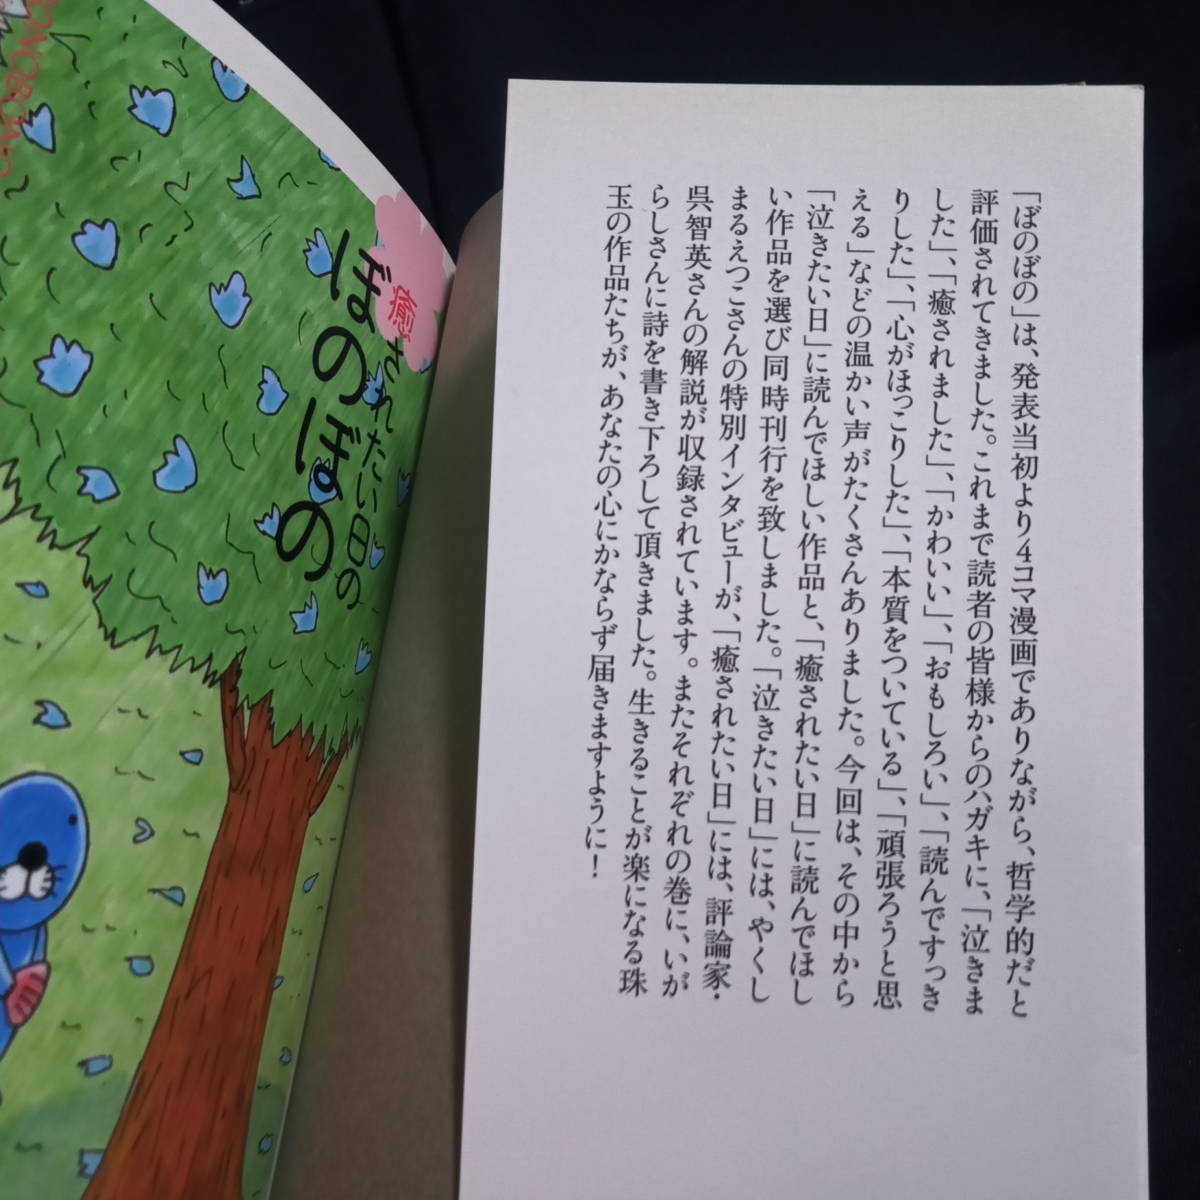 「ぼのぼの」は、発表当初より4コマ漫画でありながら、哲学的だと
評価されてきました。これまで読者の皆様からのハガキに、「泣きま
した」、「癒されました」、「かわいい」、「おもしろい」、「読んですっき
りした」、「心がほっこりした」、「本質をついている」、「頑張ろうと思
える」などの温かい声がたくさんありました。今回は、その中から
「泣きたい日」に読んでほしい作品と、「癒されたい日」に読んでほし
い作品を選び同時刊行を致しました。「泣きたい日」には、やくし
まるえつこさんの特別インタビューが、「癒されたい日」には、評論家・
呉智英さんの解説が収録されています。またそれぞれの巻に、いが
らしさんに詩を書き下ろして頂きました。生きることが楽になる珠
玉の作品たちが、あなたの心にかならず届きますように!
癒されたい日の
ぼのぼの